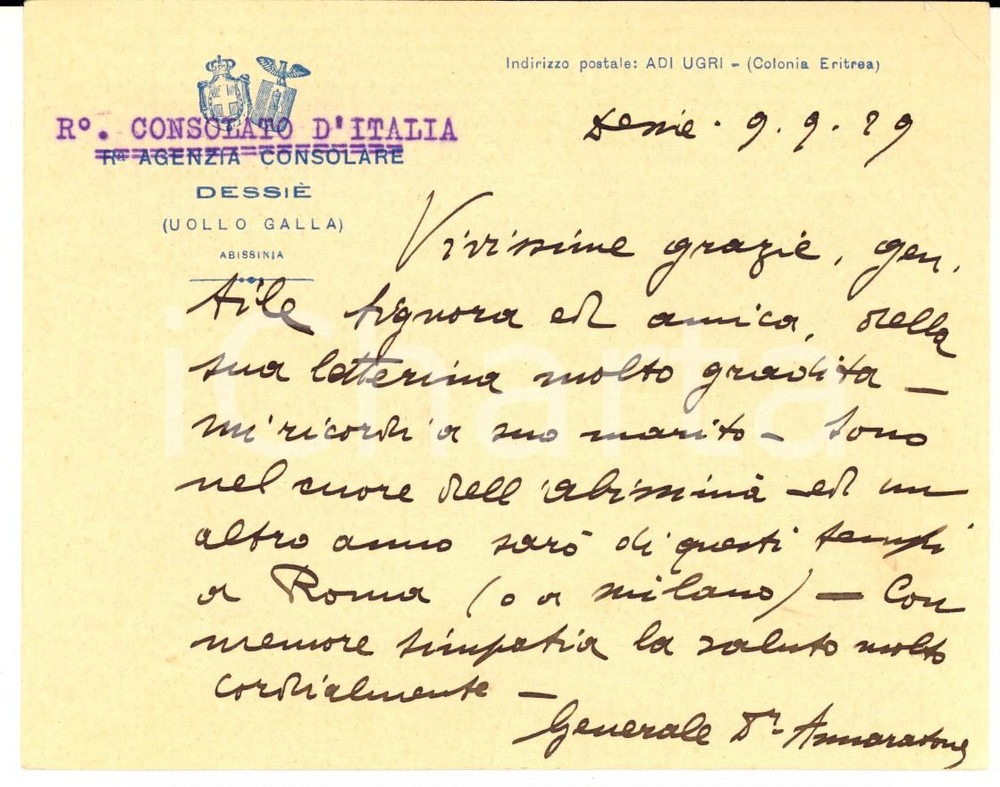 Indirizzo postale: ADI UGRI - (Colonia Eritrea)
R°. CONSOLATO D'ITALIA
Rª AGENZIA CONSOLARE
DESSIÈ
(UOLLO GALLA)
ABISSINIA
Dessie. 9.9.29
Vivissime grazie, gen.
tile signora ed amica, della
sua letterina molto gradita —
mi ricordi a suo marito — Sono
nel cuore dell'abissinia ed un
altro anno sarò di questi tempi
a Roma (o a milano) — Con
memore simpatia la saluto molto
cordialmente —
Generale Dr. Annaratone
iCharta